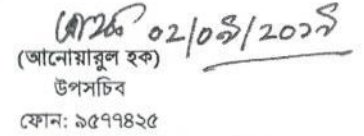 ০২/০৯/২০১৯
(আনোয়ারুল হক)
উপসচিব
ফোন: ৯৫৭৭৪২৫